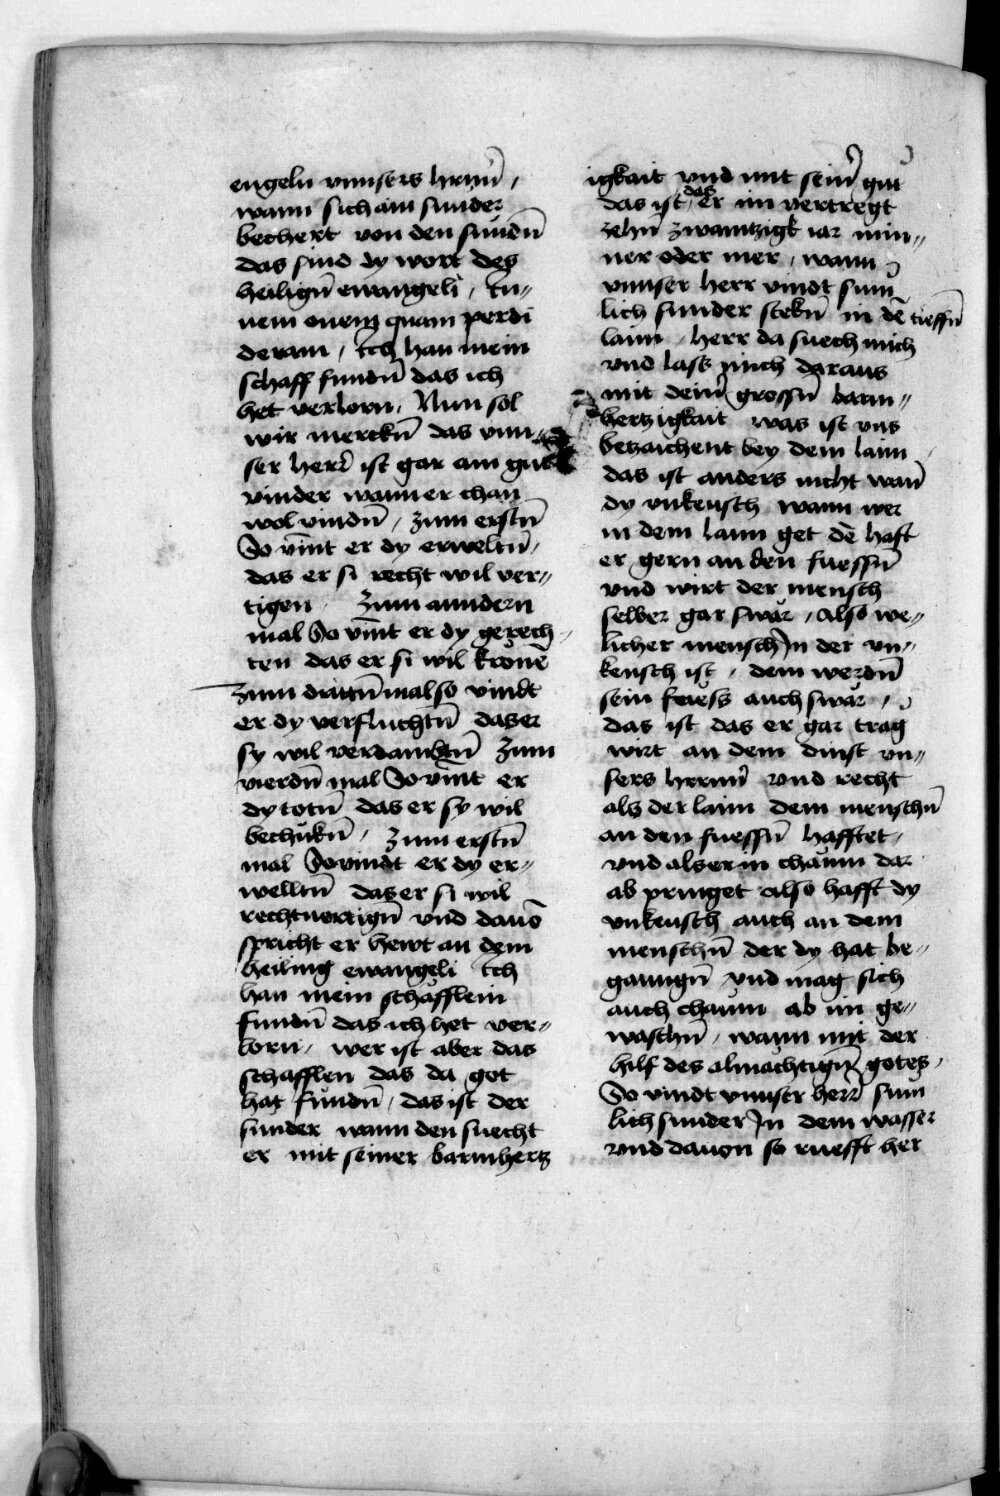 engeln vnnsers hrnn̄ /
wann sich ain sunder
bechert von den sundn̄
das sind dy wort des
heilign̄ ewangeli / In„
neni ouem quam perdi
deram / Ich han mein
schaff fundn̄ das ich
het verlorn / Nun sol
wir merckn̄ das vnn„
ser herr̄ ist gar ain gut̄
vinder wann er chan
wol vindn̄ / zum erstn̄
So vīnt er dy erweltn̄ /
das er si recht wil ver„
tigen / Zum anndern
mal So vīnt er dy gerech„
ten das er si wil krönē
zum drittn̄ mal so vindt
er dy verfluchtn̄ das er
sy wil verdambtn̄ zum
vierdn̄ mal So vīnt er
dy totn̄ das er sy wil
bechükn̄ / zum erstn̄
mal So vindt er dy er„
welltn̄ das er si wil
rechtuertign̄ vnd dauō
spricht er hewt an dem
heiling ewangeli Ich
han mein schäfflein
fundn̄ das ich het ver„
lorn / wer ist aber das
schäfflen das da got
hat fundn̄ / das ist der
sunder wann den suecht
er mit seiner barmhertz
igkait vnd mit sein̄ güt
das ist das er im vertregt
zehn̄ zwaintzigk iar min„
ner oder mer / wann
vnnser herr vindt süm
lich sunder stekn̄ in dē tieffn̄
laim / herr da suech mich
vnd lass mich daraus
mit dein̄ grossn̄ barm„
hertzigkait was ist vns
betzaichent bey dem laim
das ist anders nicht wan̄
dy vnkeusch wann wer
in dem laim get dē haft
er gern an den fuessn̄
vnd wirt der mensch
selber gar swär / also we„
licher mensch In der vn„
keusch ist / dem werdn̄
sein füess auch swär /
das ist das er gar träg
wirt an dem dinst vn„
sers hrnn̄ vnd recht
als der laim dem menschn̄
an den fuessn̄ hafftet /
vnd als er in chaum dar
ab pringet also hafft dy
vnkeusch auch an dem
menschn̄ der dy hat be„
ganngn̄ vnd mag sich
auch chaum ab im ge„
waschn̄ / wann mit der
hilf des almächtign̄ gotes /
So vindt vnnser herr̄ süm
lich sunder In dem wasser
vnd dauon so ruefft her